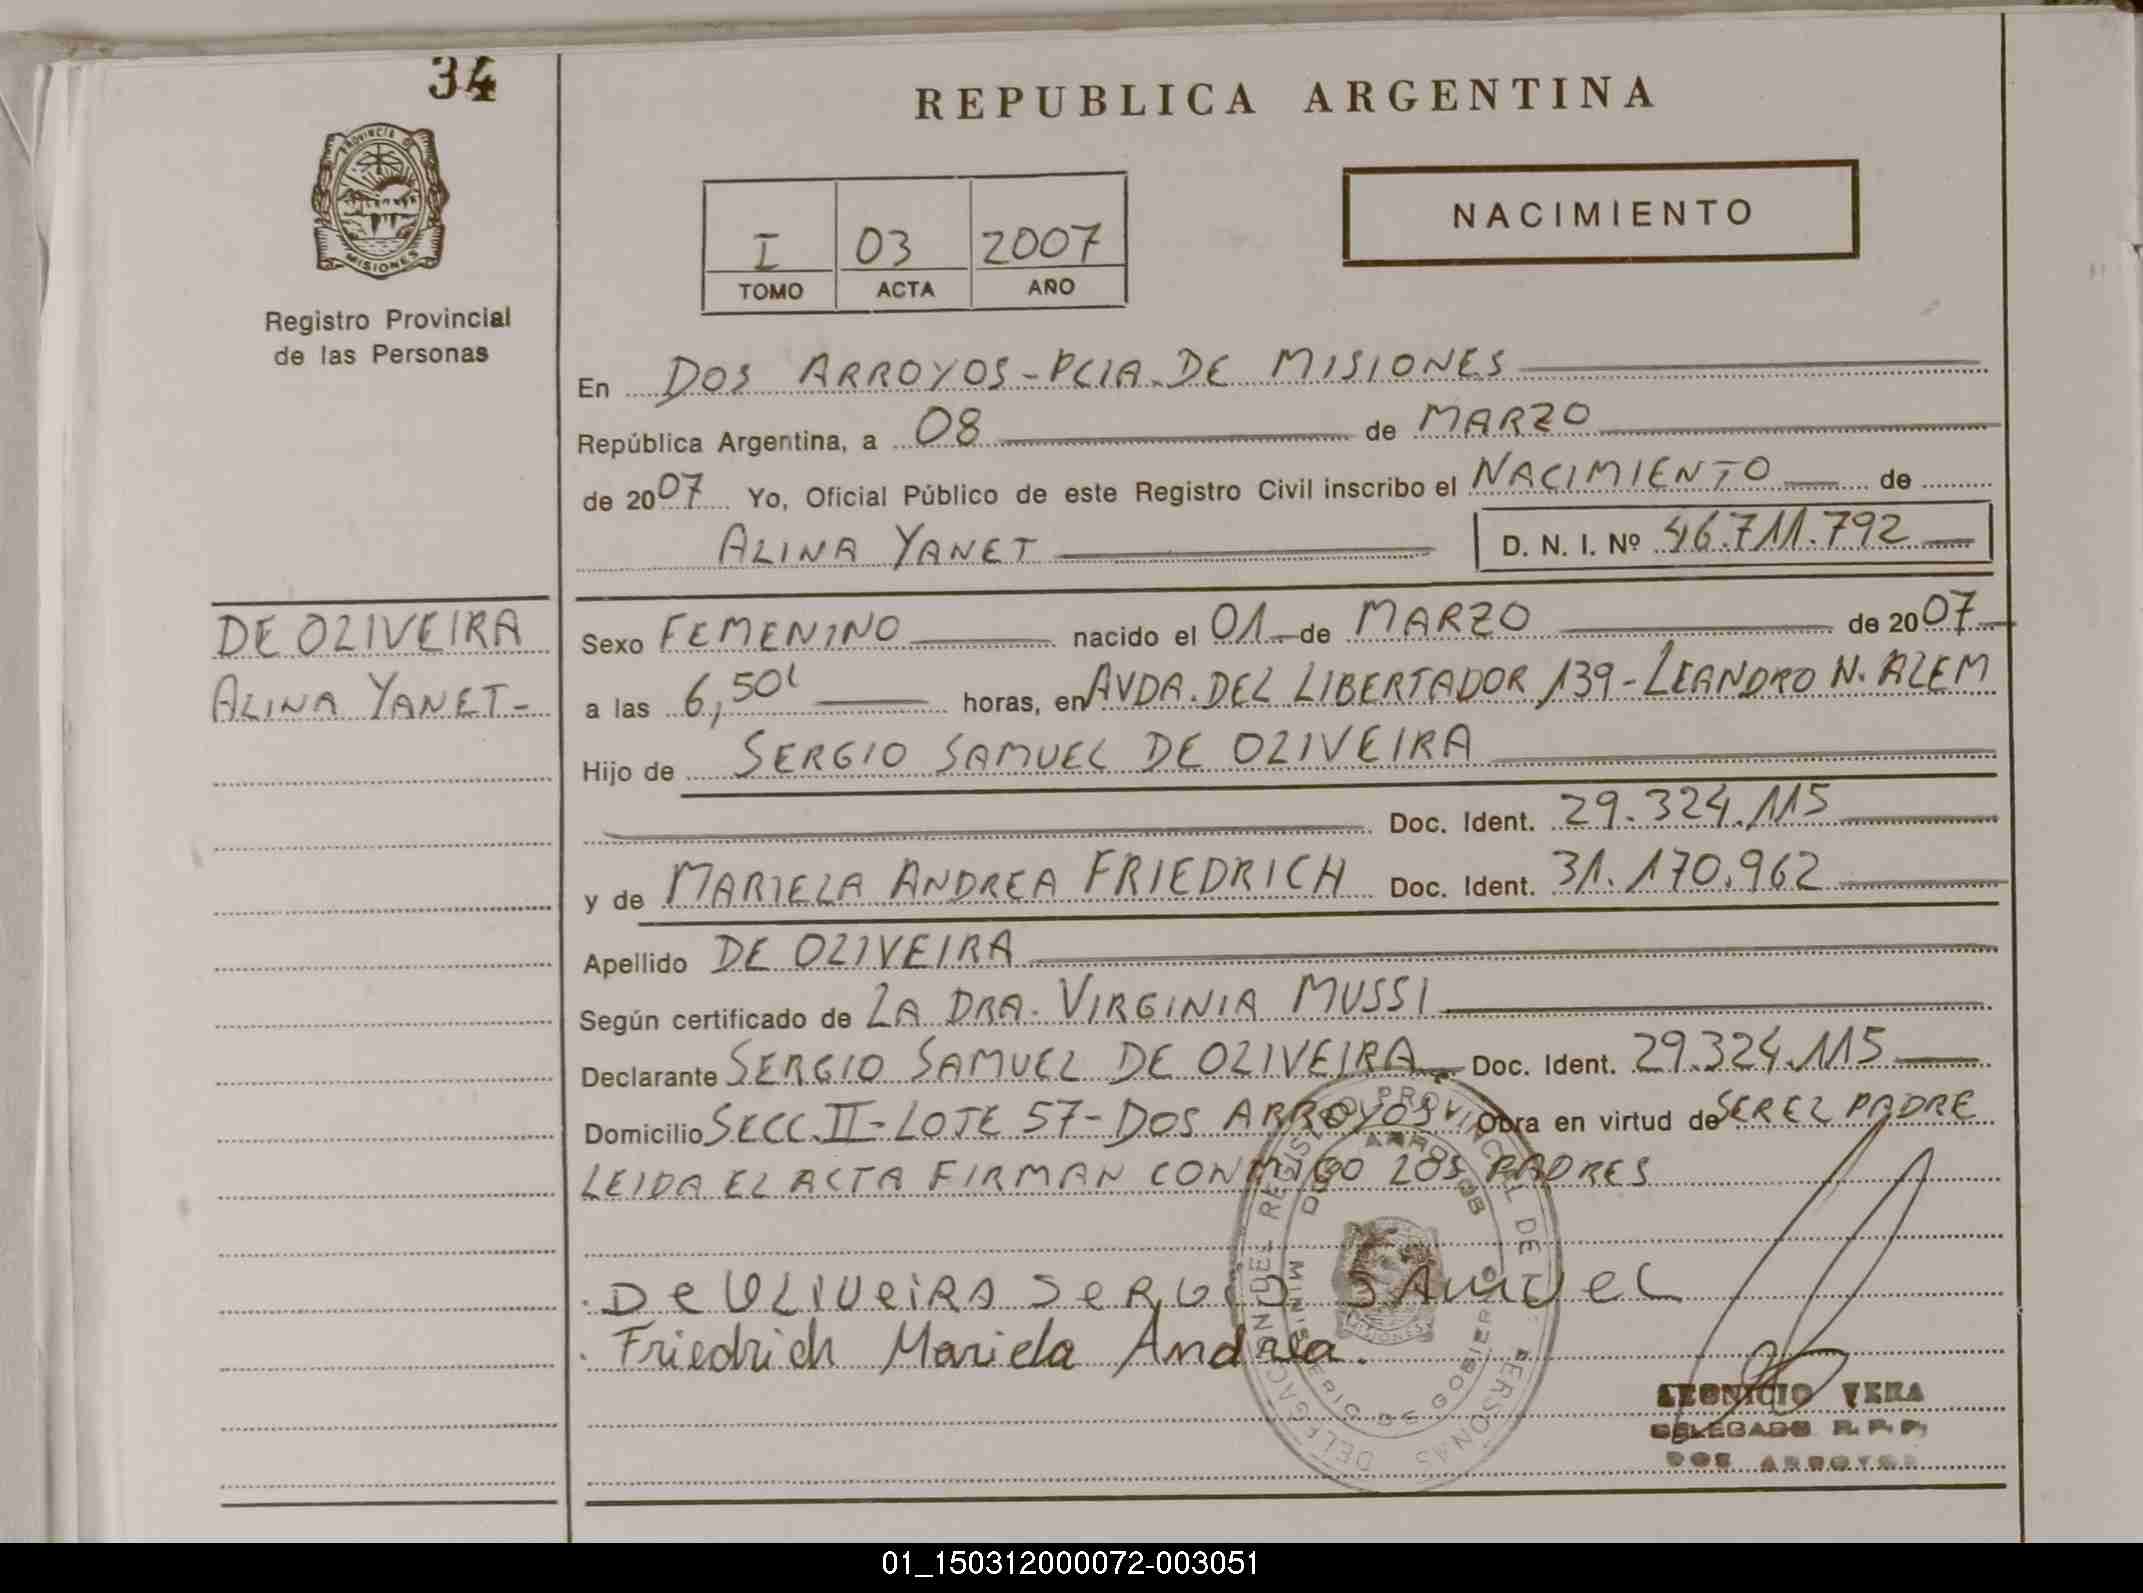 34
REPUBLICA ARGENTINA
PROVINCIA DE
MISIONES
Registro Provincial
de las Personas
I 03 2007
TOMO ACTA AÑO
NACIMIENTO
En DOS ARROYOS - PCIA. DE MISIONES
República Argentina, a 08 de MARZO
de 2007 Yo, Oficial Público de este Registro Civil inscribo el NACIMIENTO de
ALINA YANET D. N. I. Nº 46.711.792
DE OLIVEIRA
ALINA YANET -
Sexo FEMENINO nacido el 01 de MARZO de 2007
a las 6,50 horas, en AVDA. DEL LIBERTADOR 139 - LEANDRO N. ALEM
Hijo de SERGIO SAMUEL DE OLIVEIRA
Doc. Ident. 29.324.115
y de MARIELA ANDREA FRIEDRICH Doc. Ident. 31.170.962
Apellido DE OLIVEIRA
Según certificado de LA DRA. VIRGINIA MUSSI
Declarante SERGIO SAMUEL DE OLIVEIRA Doc. Ident. 29.324.115
Domicilio SECC. II - LOTE 57 - DOS ARROYOS Obra en virtud de SER EL PADRE
LEIDA EL ACTA FIRMAN CONMIGO LOS PADRES
De OLIVEIRA SERGIO SAMUEL
Friedrich Mariela Andrea.
DELEGACION DEL REGISTRO PROVINCIAL DE PERSONAS
MINISTERIO DE GOBIERNO
MISIONES
LEONICIO VERA
DELEGADO R. P. P.
DOS ARROYOS
01_150312000072-003051